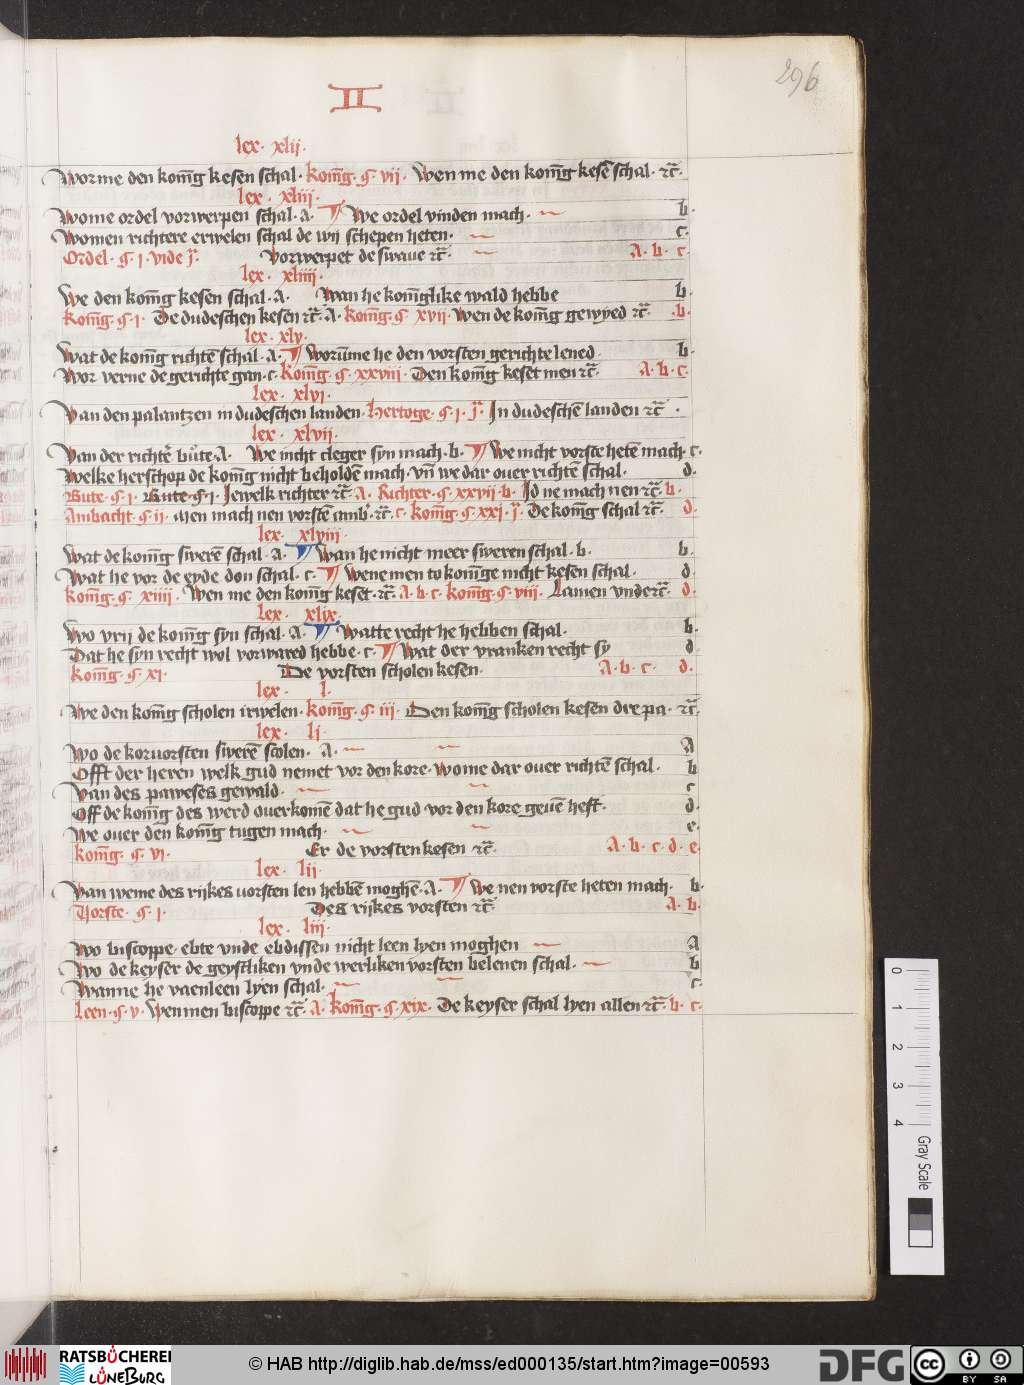 296
II
lex. xlii.
Wor me den kom̄g kesen schal. kom̄g. g. vii. Wen me den kom̄g kesē schal. ꝛc̄.
lex. xliii.
Wo me ordel vorwerpen schal. a. ¶ We ordel vinden mach. b.
Wo men richtere erwelen schal de wij schepen heten. c.
Ordel. g. i. vide jͬ. Vorwerpet de swaue ꝛc̄ A. b. c.
lex. xliiii.
We den kom̄g kesen schal. A. Wan he kom̄glike wald hebbe b.
kom̄g. g. i. De dudeschen kesen ꝛc̄. A. kom̄g. g. xvii. Wen de kom̄g gewyed ꝛc̄ .b.
lex. xlv.
Wat de kom̄g richtē schal. A. ¶ Worūme he den vorsten gerichte lened. b.
Wor verne de gerichte gan. c. kom̄g. g. xxviii. Den kom̄g keset men ꝛc̄. A. b. c.
lex. xlvi.
Van den palantzen in dudeschen landen. Hertoge. g. i. jͬ. In dudeschē landen ꝛc̄.
lex. xlvii.
Van der richtͤ būte. A. We nicht cleger syn mach. b. ¶ We nicht vorste hetē mach. c.
Welke herschop de kom̄g nicht beholdē mach. vn̄ we dar ouer richtē schal. d.
Bute. g. i. Bute. g. i. Jewelk richter ꝛc̄. A. Richter. g. xxvii. b. Id ne mach nen ꝛc̄. b.
Ambacht. g. ii. Men mach nen vorstē amb'. ꝛc̄. c. kom̄g. g. xxi. jͬ. De kom̄g schal ꝛc̄. d.
lex. xlviii.
Wat de kom̄g swerē schal. A. ¶ Wan he nicht meer sweren schal. b. b.
Wat he vor de eyde don schal. c. ¶ Wene men to kom̄ge nicht kesen schal. d
kom̄g. g. xiiii. Wen me den kom̄g keset. ꝛc̄. A. b. c. kom̄g. g. viii. Lamen vnde ꝛc̄. d.
lex. xlix.
Wo vrij de kom̄g syn schal. A. ¶ Watte recht he hebben schal. b.
Dat he syn recht wol vorwared hebbe. c. ¶ Wat der vranken recht sy d
kom̄g. g. xi. De vorsten scholen kesen. A. b. c. d.
lex. l.
We den kom̄g scholen irwelen. kom̄g. g. iii. Den kom̄g scholen kesen dre pa. ꝛc̄.
lex. li.
Wo de koruorsten swerē scolen. A. A
Offt der heren welk gud nemet vor den kore. Wo me dar ouer richtē schal. b
Van des paweses gewald. c
Off de kom̄g des werd ouerkomē dat he gud vor den kore geuē heft. d.
We ouer den kom̄g tugen mach. e.
kom̄g. g. vi. Er de vorsten kesen ꝛc̄. A. b. c. d. e.
lex. lii.
Van weme des rijkes vorsten len hebbē moghē. A. ¶ We nen vorste heten mach. b.
Vorste. g. i. Des rijkes vorsten ꝛc̄ A. b.
lex. liii.
Wo biscoppe. ebte vnde ebdissen nicht leen lyen moghen A
Wo de keyser de geystliken vnde werliken vorsten belenen schal. b
Wanne he vaenleen lyen schal. c.
Leen. g. v. Wen men biscoppe ꝛc̄. A. kom̄g. g. xix. De keyser schal lyen allen ꝛc̄. b. c.
0 1 2 3 4
Gray Scale
RATSBÜCHEREI LÜNEBURG
© HAB http://diglib.hab.de/mss/ed000135/start.htm?image=00593
DFG
cc BY SA